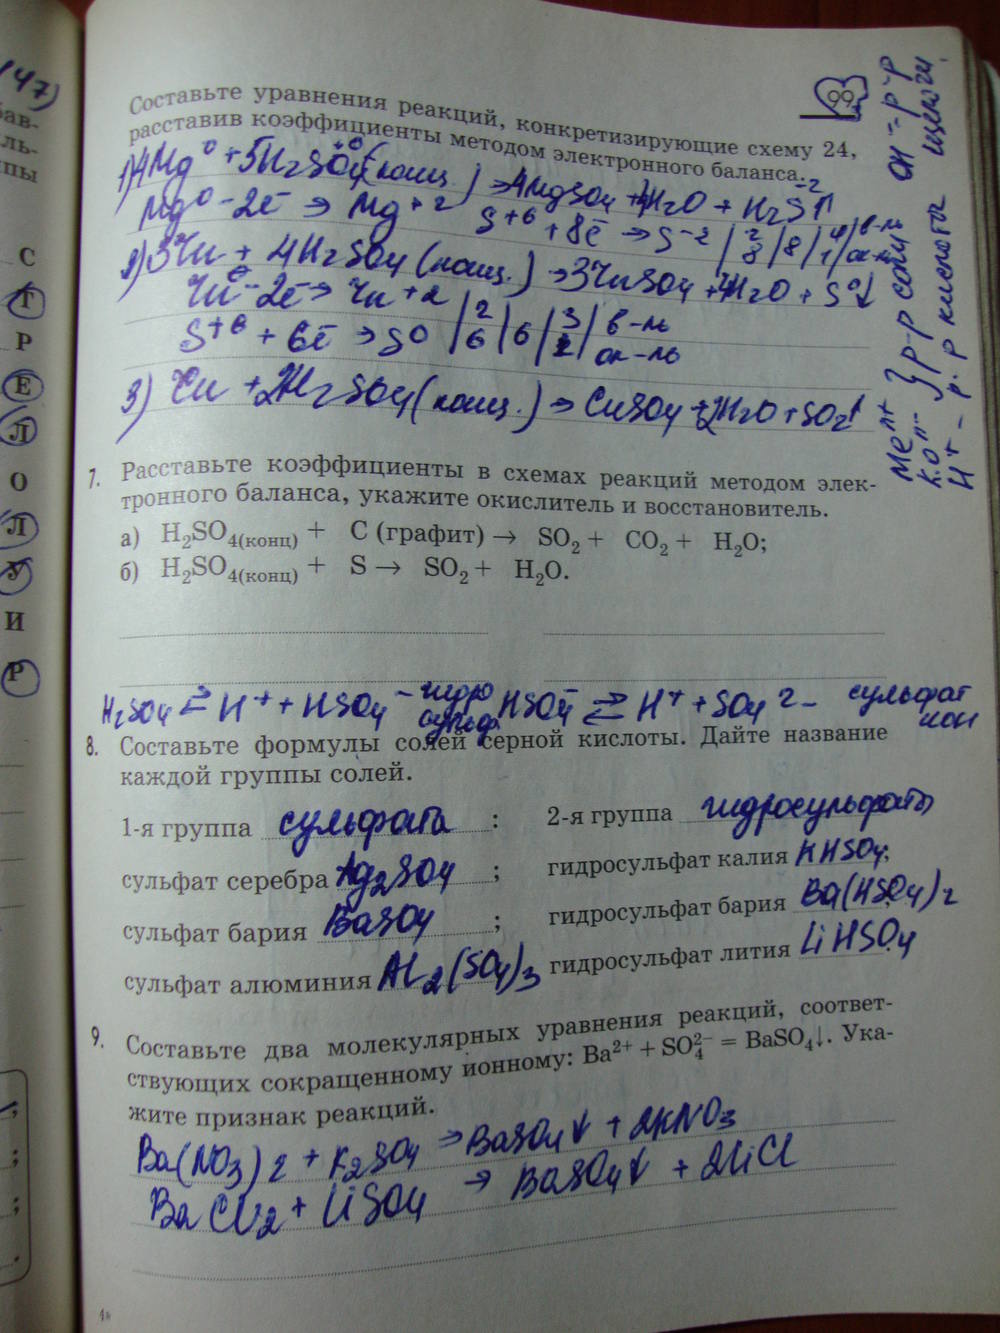 (47)
бав-
ль-
ппы
С
Т
Р
Е
Л
О
Л
У
И
Р
99
Составьте уравнения реакций, конкретизирующие схему 24,
расставив коэффициенты методом электронного баланса.
1) 4Mg⁰ + 5H₂SO₄ (конц.) → 4MgSO₄ + 4H₂O + H₂S↑
Mg⁰ - 2ē → Mg+2 S+6 + 8ē → S-2 | 2 8 | 8 | 4 1 | в-ль ок-ль
2) 3Zn + 4H₂SO₄ (конц.) → 3ZnSO₄ + 4H₂O + S⁰↓
Zn⁰ - 2ē → Zn+2
S+6 + 6ē → S0 | 2 6 | 6 | 3 1 | в-ль ок-ль
3) Cu + 2H₂SO₄ (конц.) → CuSO₄ + 2H₂O + SO₂↑
Me n+ } р-р соли OH⁻ - р-р
к.о n- H+ - р.р кислота щелочи
7. Расставьте коэффициенты в схемах реакций методом элек-
тронного баланса, укажите окислитель и восстановитель.
а) H₂SO₄(конц) + C (графит) → SO₂ + CO₂ + H₂O;
б) H₂SO₄(конц) + S → SO₂ + H₂O.
H₂SO₄ ⇄ H⁺ + HSO₄⁻ гидро сульф. HSO₄⁻ ⇄ H⁺ + SO₄ 2- сульфат ион
8. Составьте формулы солей серной кислоты. Дайте название
каждой группы солей.
1-я группа сульфаты : 2-я группа гидросульфаты
сульфат серебра Ag₂SO₄ ; гидросульфат калия KHSO₄;
сульфат бария BaSO₄ ; гидросульфат бария Ba(HSO₄)₂
сульфат алюминия Al₂(SO₄)₃ гидросульфат лития LiHSO₄.
9. Составьте два молекулярных уравнения реакций, соответ-
ствующих сокращенному ионному: Ba²⁺ + SO₄²⁻ = BaSO₄↓. Ука-
жите признак реакций.
Ba(NO₃)₂ + K₂SO₄ → BaSO₄↓ + 2KNO₃
BaCl₂ + LiSO₄ → BaSO₄↓ + 2LiCl